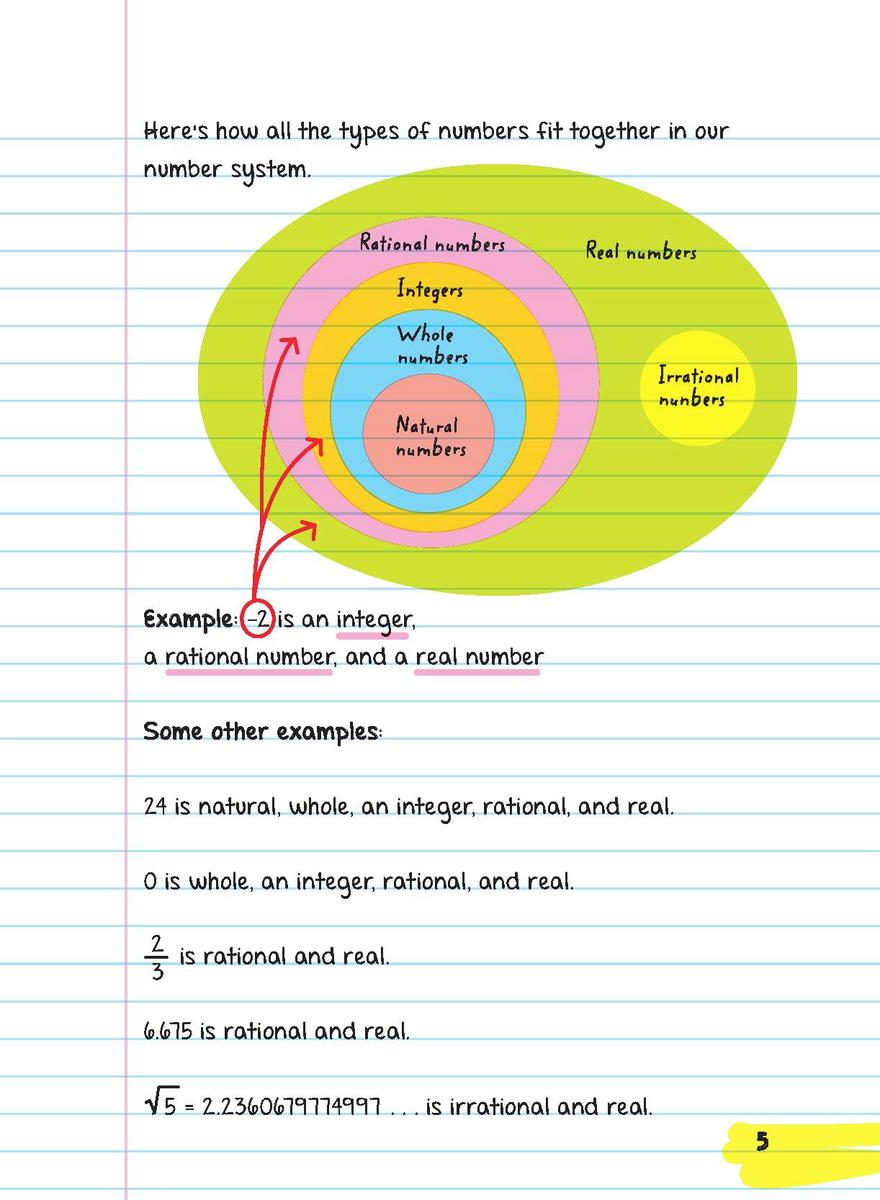 Here's how all the types of numbers fit together in our
number system.
Rational numbers
Real numbers
Integers
Whole
numbers
Irrational
nunbers
Natural
numbers
Example: -2 is an integer,
a rational number, and a real number
Some other examples:
24 is natural, whole, an integer, rational, and real.
0 is whole, an integer, rational, and real.
2/3 is rational and real.
6.675 is rational and real.
√5 = 2.2360679774997 . . . is irrational and real.
5